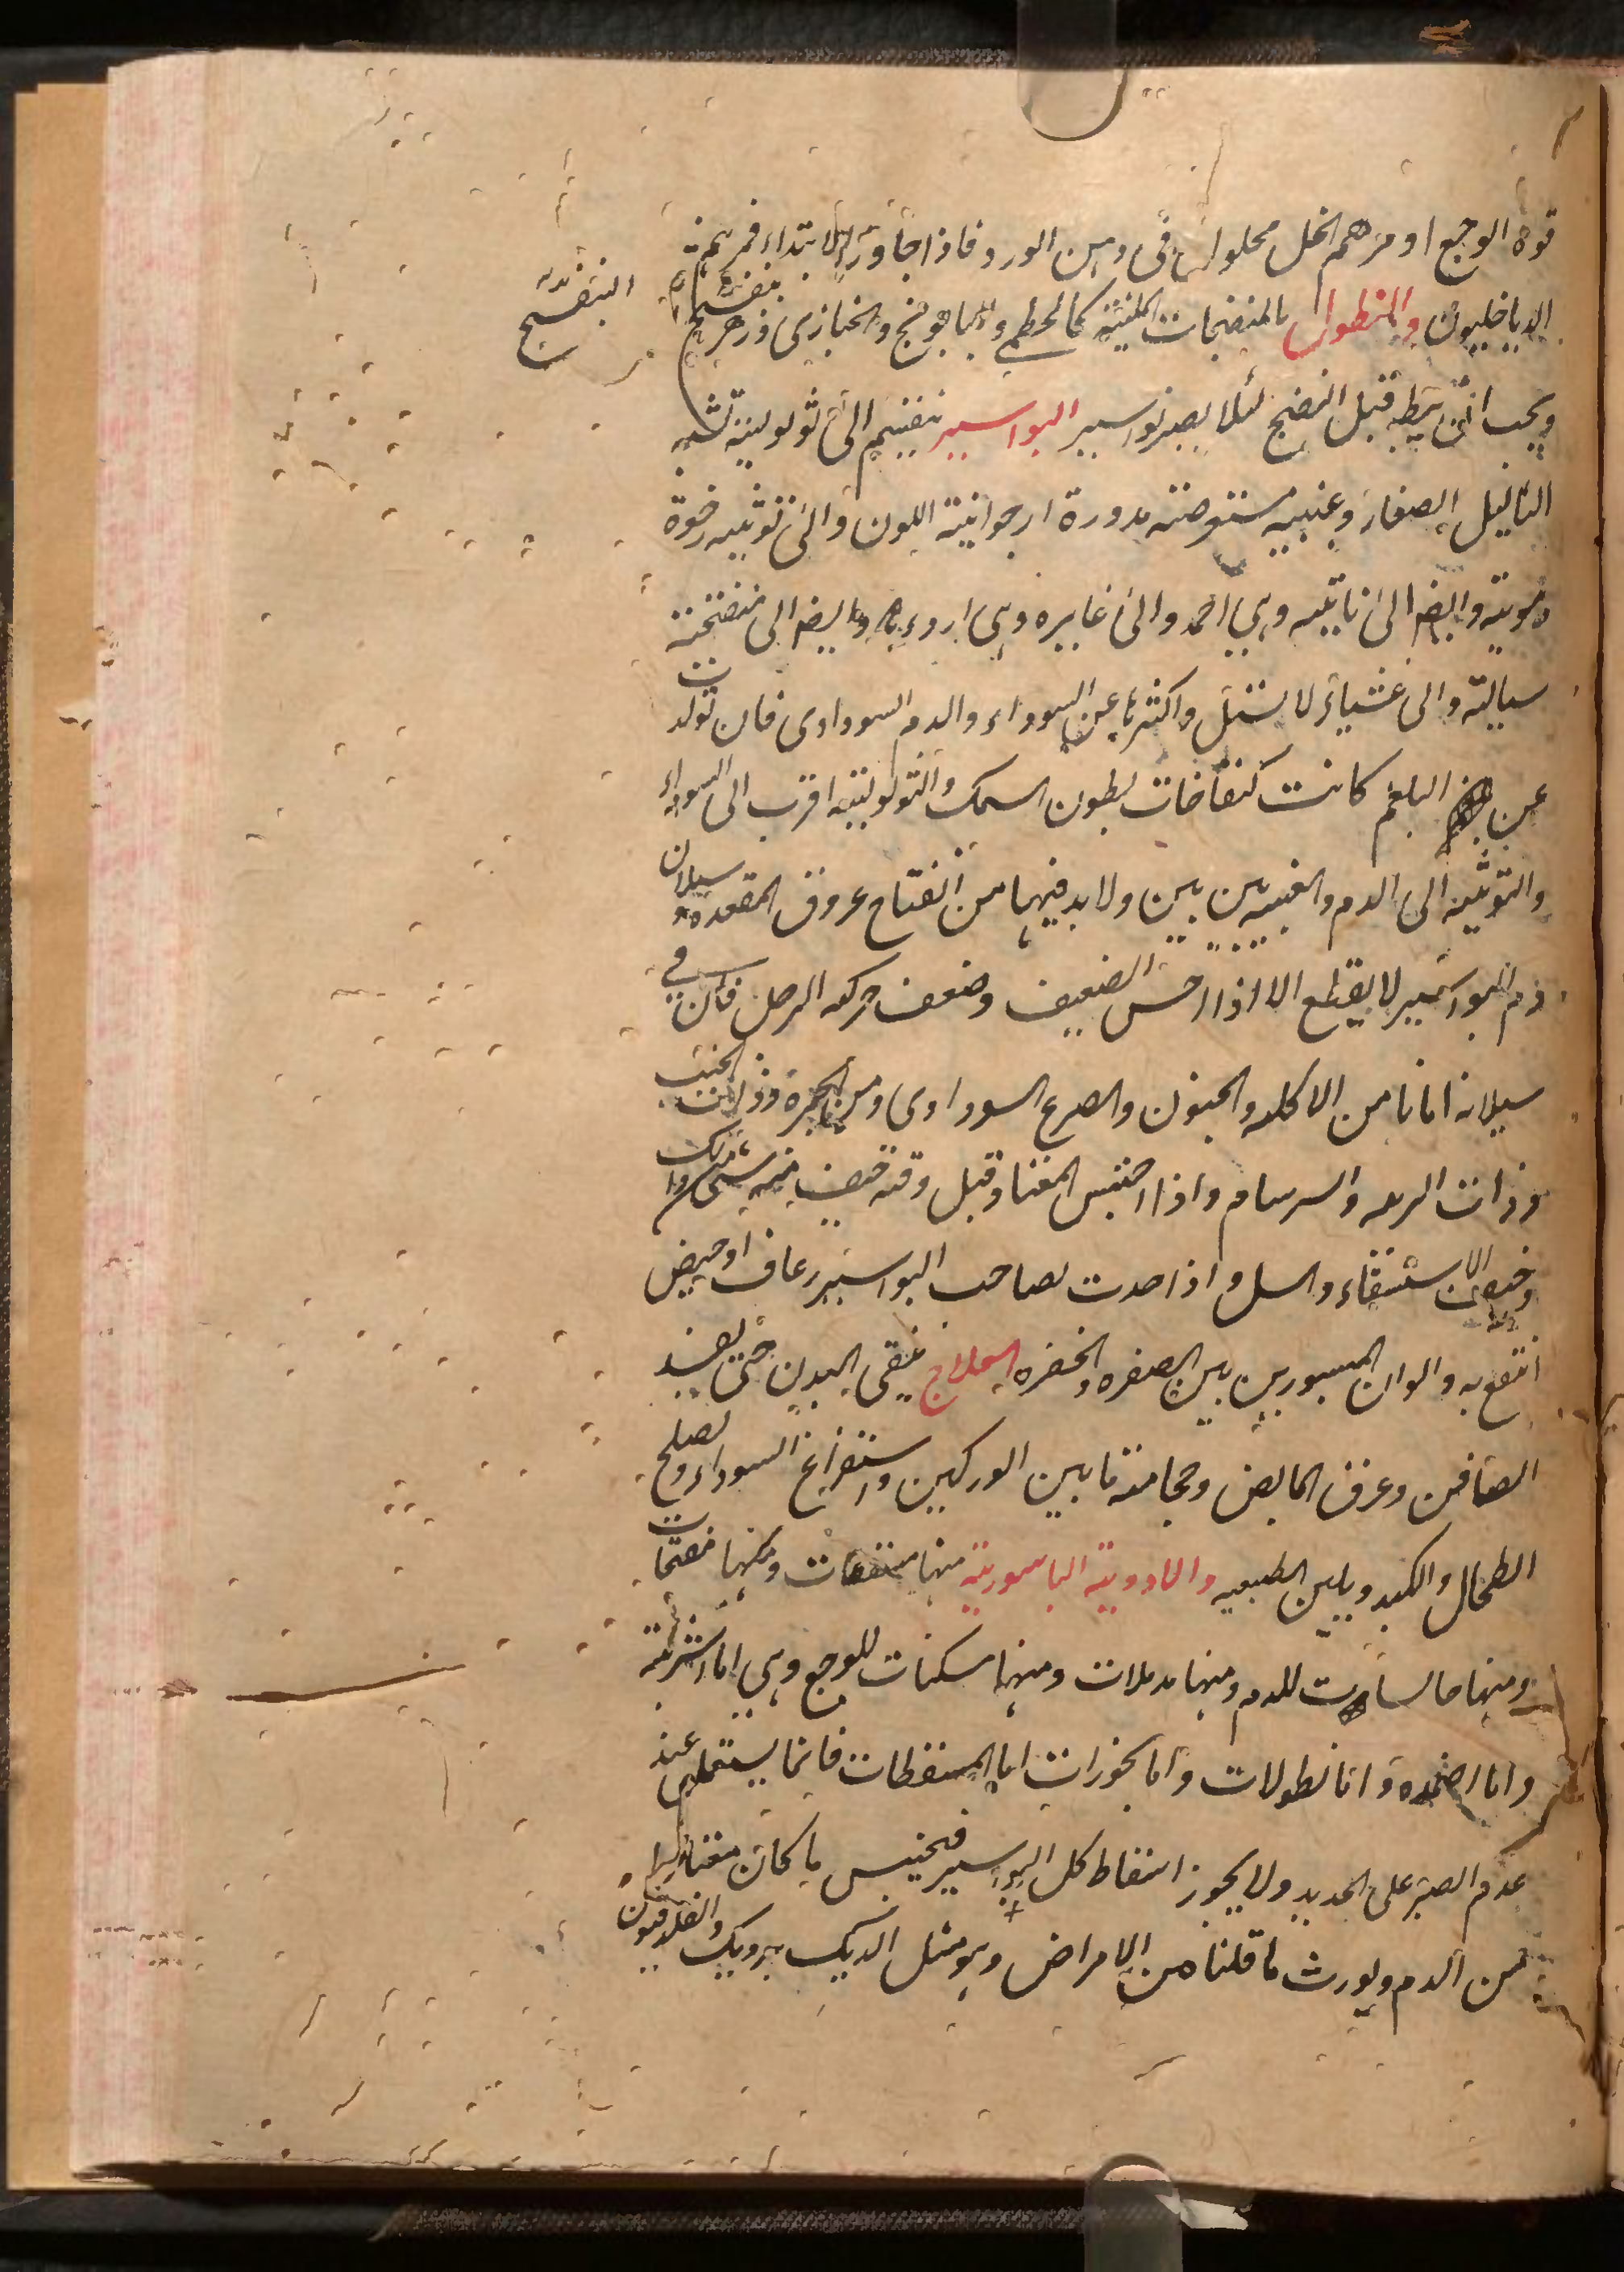 قوة الوجع او مرهم الخل محلولى فى دهن الورد فاذا جاوز الابتداء فمرهم
الدياخليون والنطول بالمنضجات الملينة كالخطمى والبابونج والخبازى وزهر بنفسج
البنفسج
ويجب ان يبط قبل النضج لئلا يصير نواسير البواسير ينقسم الى ثولولية تشبه
الثاليل الصغار وعنبيه مستعرضة مدورة ارجوانية اللون والى توثيه رخوة
دموية وايضا الى ناتيه وهى احمد والى غايره وهى اردء وايضا الى منفتحة
سيالة والى عمياء لا تسيل واكثرها عن السوداء والدم السوداوى فان تولدت
عن البلغم كانت كنفاخات بطون السمك والثولولية اقرب الى السوداء
والتوثيه الى الدم والعنبيه بين بين ولا بد فيها من انفتاح عروق المقعده سيلان
دم البواسير لا يقطع الا اذا احس الضعيف وضعف حركه الرجل فان فى
سيلانه امانا من الاكله والجنون والصرع السوداوى ومن الحمرة وذات الجنب
وذات الريه والسرسام واذا احتبس المعتاد قبل وقته خيف منه شئ من ذلك
وخيف الاستسقاء والسل واذا حدث لصاحب البواسير رعاف او حيض
انتفع به والوان المبسورين بين الصفره والخضره العلاج ينقى البدن حتى بفصد
الصافن وعرق المابض وحجامة ما بين الوركين واستفراغ السوداء ويصلح
الطحال والكبد ويلين الطبيعيه والادوية الباسورية منها مسقطات ومنها مفتحات
ومنها حابسات للدم ومنها مدملات ومنها مسكنات للوجع وهى اما اشربة
واما اضمده واما نطولات واما بخورات اما المسقطات فانما يستعمل عند
عدم الصبر على الحديد ولا يجوز اسقاط كل البواسير فيحتبس ما كان معتادا
من الدم ويورث ما قلناه من الامراض وهو مثل الديك برديك والفلدفيون